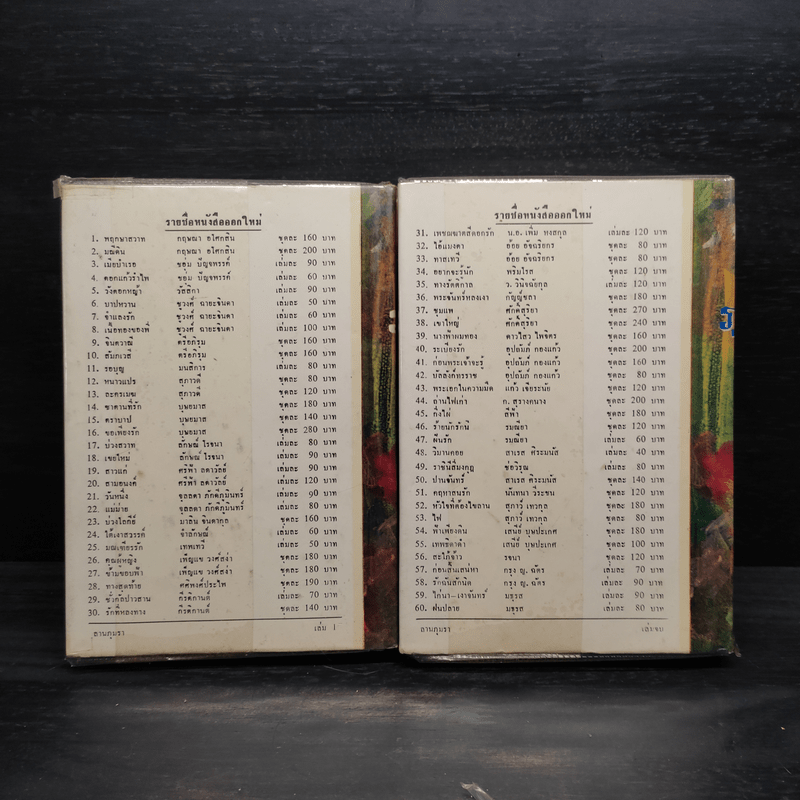 รายชื่อหนังสือออกใหม่
1. พฤกษาสวาท กฤษณา อโศกสิน ชุดละ 160 บาท
2. มณีดิน กฤษณา อโศกสิน ชุดละ 200 บาท
3. เมียบำเรอ ชอุ่ม ปัญจพรรค์ เล่มละ 90 บาท
4. ดอกแก้วรำไพ ชอุ่ม ปัญจพรรค์ เล่มละ 60 บาท
5. วังดอกหญ้า วัสสิกา เล่มละ 90 บาท
6. บาปหวาน ชูวงศ์ ฉายะจินดา เล่มละ 50 บาท
7. จำเลยรัก ชูวงศ์ ฉายะจินดา เล่มละ 60 บาท
8. เนื้อทองของพี่ ชูวงศ์ ฉายะจินดา เล่มละ 100 บาท
9. จินตวาตี ตรีอภิรุม ชุดละ 160 บาท
10. สัมภเวสี ตรีอภิรุม ชุดละ 160 บาท
11. รอบุญ มนสิการ เล่มละ 80 บาท
12. หนาวแปร สุภาวดี ชุดละ 80 บาท
13. ละครเมฆ สุภาวดี ชุดละ 120 บาท
14. ซาตานที่รัก บุษยมาส ชุดละ 180 บาท
15. ตราบาป บุษยมาส ชุดละ 140 บาท
16. ขอเพียงรัก บุษยมาส ชุดละ 280 บาท
17. บ่วงสวาท ลักษณ์ โรจนา เล่มละ 80 บาท
18. เขยใหม่ ลักษณ์ โรจนา เล่มละ 90 บาท
19. สาวแก่ ศรีฟ้า ลดาวัลย์ เล่มละ 90 บาท
20. สามอนงค์ ศรีฟ้า ลดาวัลย์ เล่มละ 120 บาท
21. วันหนึ่ง จุลลดา ภักดีภูมินทร์ เล่มละ 90 บาท
22. แม่ม่าย จุลลดา ภักดีภูมินทร์ เล่มละ 60 บาท
23. บ่วงโลกีย์ มาลิน จินดากุล ชุดละ 160 บาท
24. ใต้เงาสวรรค์ จำลักษณ์ เล่มละ 60 บาท
25. มณเฑียรรัก เทพเทวี เล่มละ 50 บาท
26. คุณผู้หญิง เพ็ญแข วงศ์สง่า ชุดละ 180 บาท
27. ข้ามขอบฟ้า เพ็ญแข วงศ์สง่า ชุดละ 180 บาท
28. ทางสุดท้าย ศศิพงศ์ประไพ ชุดละ 190 บาท
29. ชั่วกัลปาวสาน กีรติกานต์ เล่มละ 70 บาท
30. รักที่หลงทาง กีรติกานต์ ชุดละ 140 บาท
ลานภุมรา เล่ม 1
รายชื่อหนังสือออกใหม่
31. เพชฌฆาตสี่ดอกรัก น.อ. เพิ่ม หงสกุล เล่มละ 120 บาท
32. ไอ้แมงดา อ้อย อัจฉริยกร ชุดละ 80 บาท
33. ทาสเทวี อ้อย อัจฉริยกร ชุดละ 80 บาท
34. อยากจะรู้นัก พริมโรส ชุดละ 120 บาท
35. ทางรัตติกาล ว. วินิจฉัยกุล เล่มละ 120 บาท
36. พระจันทร์หลงเงา กัญญ์ชลา ชุดละ 180 บาท
37. ชุมแพ ศักดิ์สุริยา ชุดละ 270 บาท
38. เขาใหญ่ ศักดิ์สุริยา ชุดละ 240 บาท
39. นางฟ้าผมทอง ดาวไสว ไพจิตร ชุดละ 160 บาท
40. ระเบียงรัก อุปถัมภ์ กองแก้ว ชุดละ 200 บาท
41. ก่อนพระเจ้าจะรู้ อุปถัมภ์ กองแก้ว ชุดละ 160 บาท
42. บัลลังก์ทรราช อุปถัมภ์ กองแก้ว ชุดละ 80 บาท
43. พระเอกในความมืด แก้ว เจียระนัย ชุดละ 120 บาท
44. ถ่านไฟเก่า ก. สุรางคนางค์ ชุดละ 200 บาท
45. กิ่งไผ่ สีฟ้า ชุดละ 180 บาท
46. ร้ายนักรักนี้ รมณียา ชุดละ 120 บาท
47. ฝืนรัก รมณียา เล่มละ 60 บาท
48. วิมานคอย สาเรส ศิระมนัส เล่มละ 40 บาท
49. ราชินีสีมงกุฎ ช่อวิรุณ เล่มละ 80 บาท
50. ปานจันทร์ สาเรส ศิระมนัส ชุดละ 140 บาท
51. คฤหาสน์รัก นันทนา วีระชน ชุดละ 120 บาท
52. หัวใจที่ต้องไขลาน สุภาว์ เทวกุล ชุดละ 120 บาท
53. ไฟ สุภาว์ เทวกุล ชุดละ 80 บาท
54. ฟ้าเพียงดิน เสนีย์ บุษปะเกศ ชุดละ 160 บาท
55. เทพธิดาดำ เสนีย์ บุษปะเกศ ชุดละ 100 บาท
56. สะใภ้จ้าว รจนา ชุดละ 120 บาท
57. ก่อนสิ้นเสน่หา กรุง ญ. ฉัตร เล่มละ 70 บาท
58. รักฉันสักนิด กรุง ญ. ฉัตร เล่มละ 90 บาท
59. ไก่นา-เงาจันทร์ มธุรส เล่มละ 90 บาท
60. ฝนปลาย มธุรส เล่มละ 80 บาท
ลานภุมรา เล่มจบ